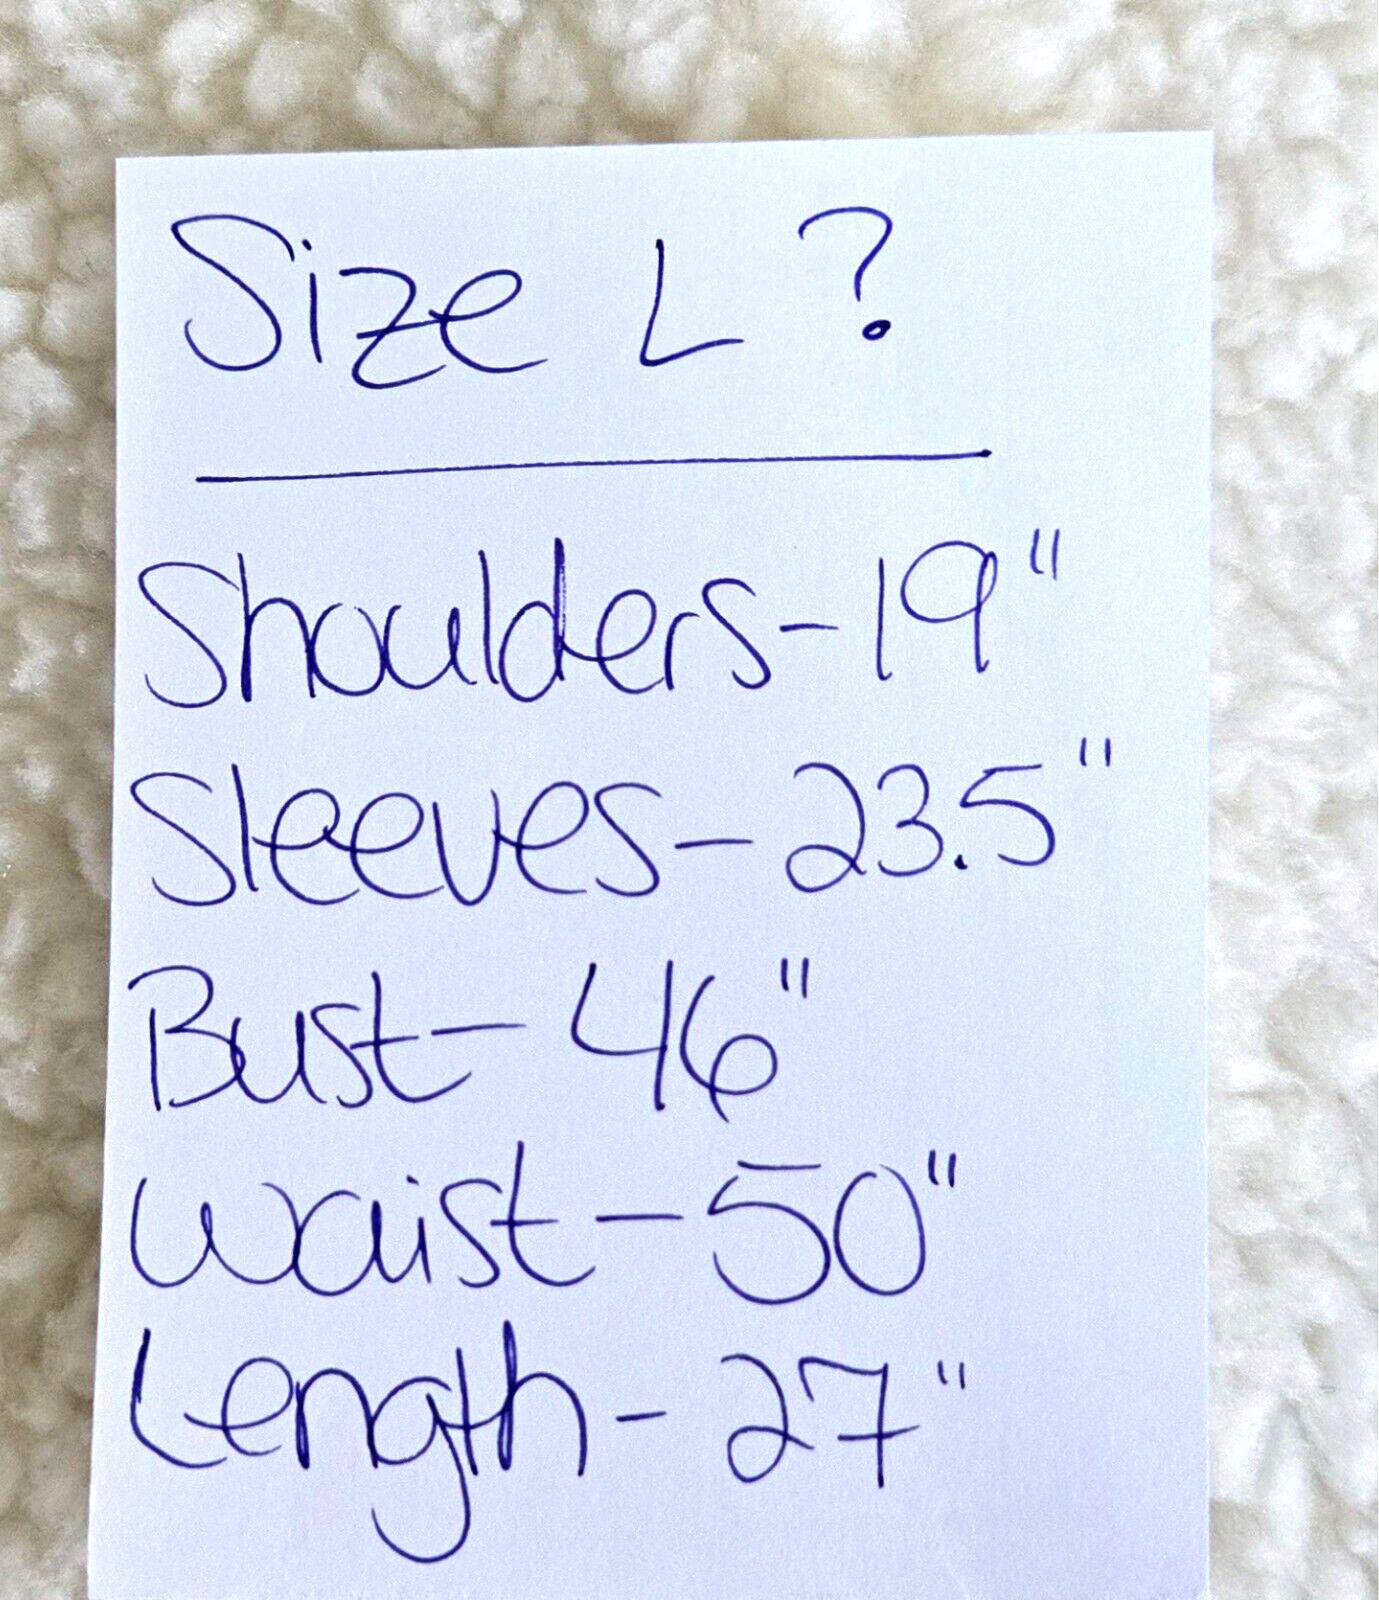 Size L ?
Shoulders-19"
Sleeves-23.5"
Bust-46"
Waist-50"
Length-27"